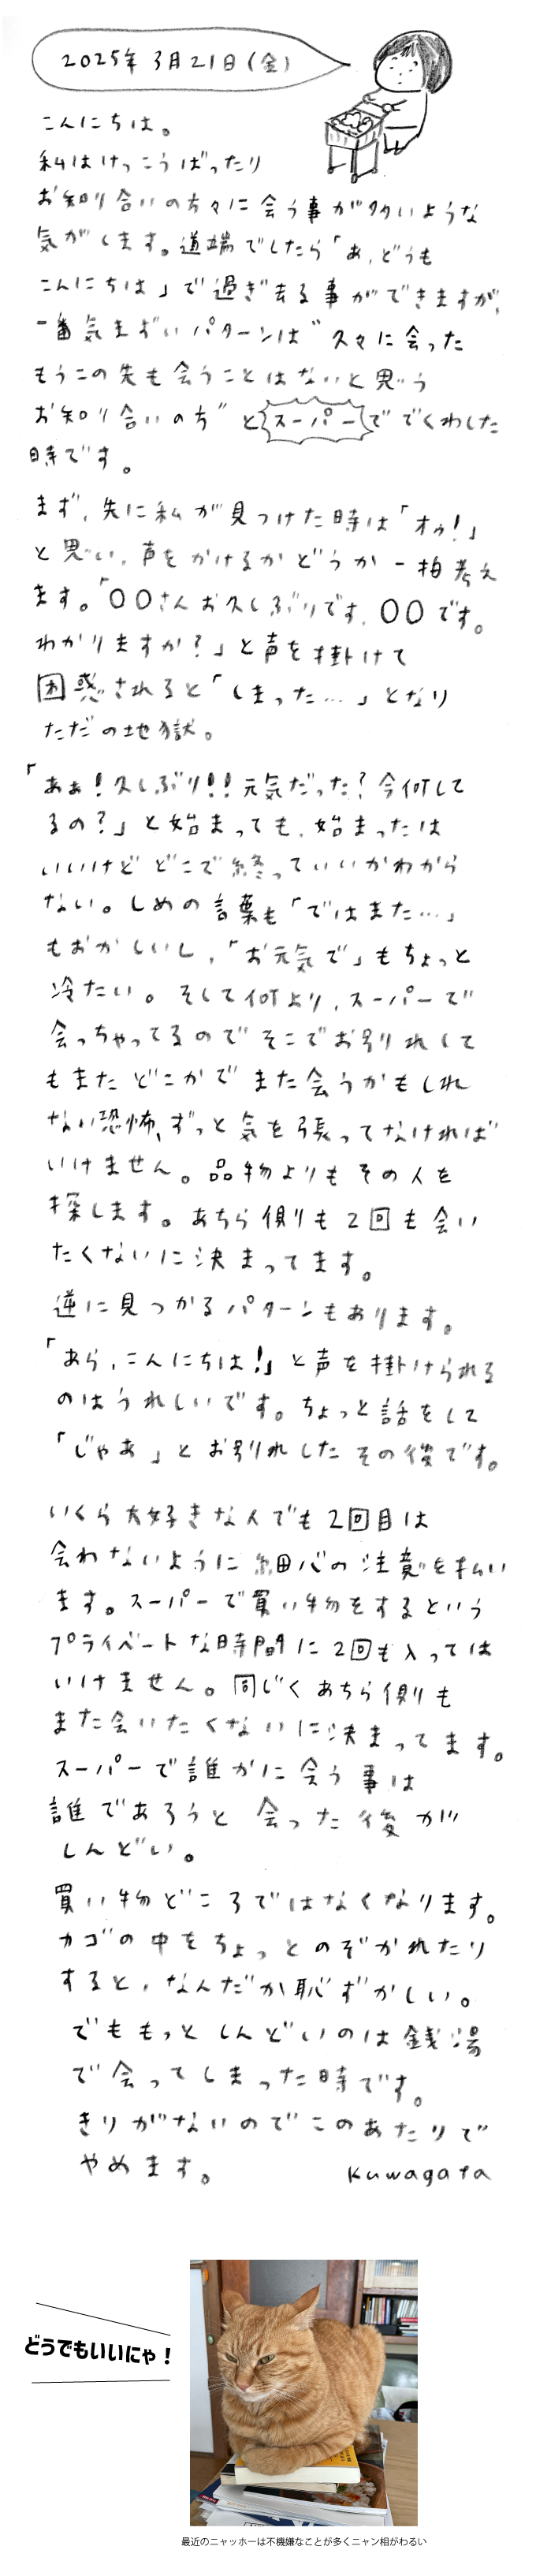 2025年 3月21日(金)
こんにちは。
私はけっこうばったり
お知り合いの方々に会う事が多いような
気がします。道端でしたら「あ、どうも
こんにちは」で過ぎ去る事ができますが、
一番気まずいパターンは"久々に会った
もうこの先も会うことはないと思う
お知り合いの方"とスーパーででくわした
時です。
まず、先に私が見つけた時は「オゥ!」
と思い、声をかけるかどうか一拍考え
ます。「〇〇さんお久しぶりです、〇〇です。
わかりますか?」と声を掛けて
困惑されると「しまった…」となり
ただの地獄。
「あぁ!久しぶり!!元気だった?今何して
るの?」と始まっても、始まったは
いいけどどこで終っていいかわから
ない。しめの言葉も「ではまた…」
もおかしいし、「お元気で」もちょっと
冷たい。そして何より、スーパーで
会っちゃってるのでそこでお別れして
もまたどこかでまた会うかもしれ
ない恐怖、ずっと気を張ってなければ
いけません。品物よりもその人を
探します。あちら側も2回も会い
たくないに決まってます。
逆に見つかるパターンもあります。
「あら、こんにちは!」と声を掛けられる
のはうれしいです。ちょっと話をして
「じゃあ」とお別れしたその後です。
いくら大好きな人でも2回目は
会わないように細心の注意を払い
ます。スーパーで買い物をするという
プライベートな時間に2回も入っては
いけません。同じくあちら側も
また会いたくないに決まってます。
スーパーで誰かに会う事は
誰であろうと会った後が
しんどい。
買い物どころではなくなります。
カゴの中をちょっとのぞかれたり
すると、なんだか恥ずかしい。
でももっとしんどいのは銭湯
で会ってしまった時です。
きりがないのでこのあたりで
やめます。 Kuwagata
どうでもいいにゃ!
最近のニャッホーは不機嫌なことが多くニャン相がわるい